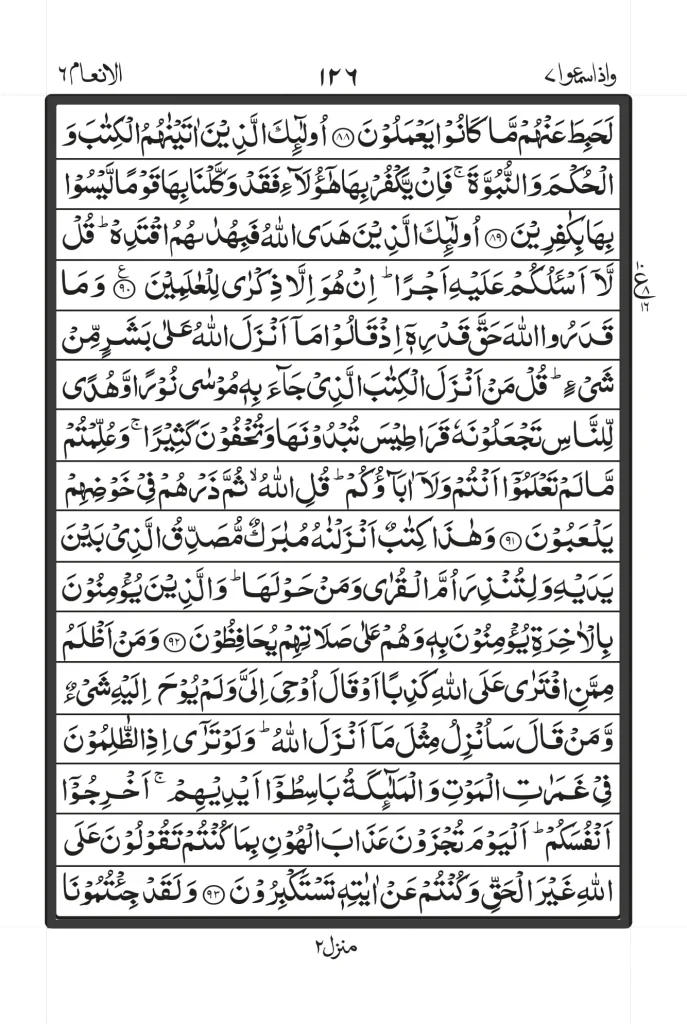 واذاسمعوا ۷ ۱۲۶ الانعام ۶
لَحَبِطَ عَنۡهُمۡ مَّا كَانُوۡا يَعۡمَلُوۡنَ ۝۸۸ اُولٰٓئِكَ الَّذِيۡنَ اٰتَيۡنٰهُمُ الۡكِتٰبَ وَ
الۡحُكۡمَ وَالنُّبُوَّةَ ۚ فَاِنۡ يَّكۡفُرۡ بِهَا هٰٓؤُلَآءِ فَقَدۡ وَكَّلۡنَا بِهَا قَوۡمًا لَّيۡسُوۡا
بِهَا بِكٰفِرِيۡنَ ۝۸۹ اُولٰٓئِكَ الَّذِيۡنَ هَدَى اللّٰهُ فَبِهُدٰٮهُمُ اقۡتَدِهۡ ؕ قُلْ
لَّاۤ اَسۡـَٔلُكُمۡ عَلَيۡهِ اَجۡرًا ؕ اِنۡ هُوَ اِلَّا ذِكۡرٰى لِلۡعٰلَمِيۡنَ ۝۹۰ وَمَا
ع ۸ ۱۶
قَدَرُوا اللّٰهَ حَقَّ قَدۡرِهٖۤ اِذۡ قَالُوۡا مَاۤ اَنۡزَلَ اللّٰهُ عَلٰى بَشَرٍ مِّنۡ
شَىۡءٍ ؕ قُلۡ مَنۡ اَنۡزَلَ الۡكِتٰبَ الَّذِىۡ جَآءَ بِهٖ مُوۡسٰى نُوۡرًا وَّهُدًى
لِّلنَّاسِ تَجۡعَلُوۡنَهٗ قَرَاطِيۡسَ تُبۡدُوۡنَهَا وَتُخۡفُوۡنَ كَثِيۡرًا ۚ وَعُلِّمۡتُمۡ
مَّا لَمۡ تَعۡلَمُوۡۤا اَنۡتُمۡ وَلَاۤ اٰبَآؤُكُمۡ ؕ قُلِ اللّٰهُ ۙ ثُمَّ ذَرۡهُمۡ فِىۡ خَوۡضِهِمۡ
يَلۡعَبُوۡنَ ۝۹۱ وَهٰذَا كِتٰبٌ اَنۡزَلۡنٰهُ مُبٰرَكٌ مُّصَدِّقُ الَّذِىۡ بَيۡنَ
يَدَيۡهِ وَلِتُنۡذِرَ اُمَّ الۡقُرٰى وَمَنۡ حَوۡلَهَا ؕ وَالَّذِيۡنَ يُؤۡمِنُوۡنَ
بِالۡاٰخِرَةِ يُؤۡمِنُوۡنَ بِهٖ وَهُمۡ عَلٰى صَلَاتِهِمۡ يُحَافِظُوۡنَ ۝۹۲ وَمَنۡ اَظۡلَمُ
مِمَّنِ افۡتَرٰى عَلَى اللّٰهِ كَذِبًا اَوۡ قَالَ اُوۡحِىَ اِلَىَّ وَلَمۡ يُوۡحَ اِلَيۡهِ شَىۡءٌ
وَّمَنۡ قَالَ سَاُنۡزِلُ مِثۡلَ مَاۤ اَنۡزَلَ اللّٰهُ ؕ وَلَوۡ تَرٰٓى اِذِ الظّٰلِمُوۡنَ
فِىۡ غَمَرٰتِ الۡمَوۡتِ وَالۡمَلٰٓئِكَةُ بَاسِطُوۡۤا اَيۡدِيۡهِمۡ ۚ اَخۡرِجُوۡۤا
اَنۡفُسَكُمۡ ؕ اَلۡيَوۡمَ تُجۡزَوۡنَ عَذَابَ الۡهُوۡنِ بِمَا كُنۡتُمۡ تَقُوۡلُوۡنَ عَلَى
اللّٰهِ غَيۡرَ الۡحَقِّ وَكُنۡتُمۡ عَنۡ اٰيٰتِهٖ تَسۡتَكۡبِرُوۡنَ ۝۹۳ وَلَقَدۡ جِئۡتُمُوۡنَا
منزل ۲